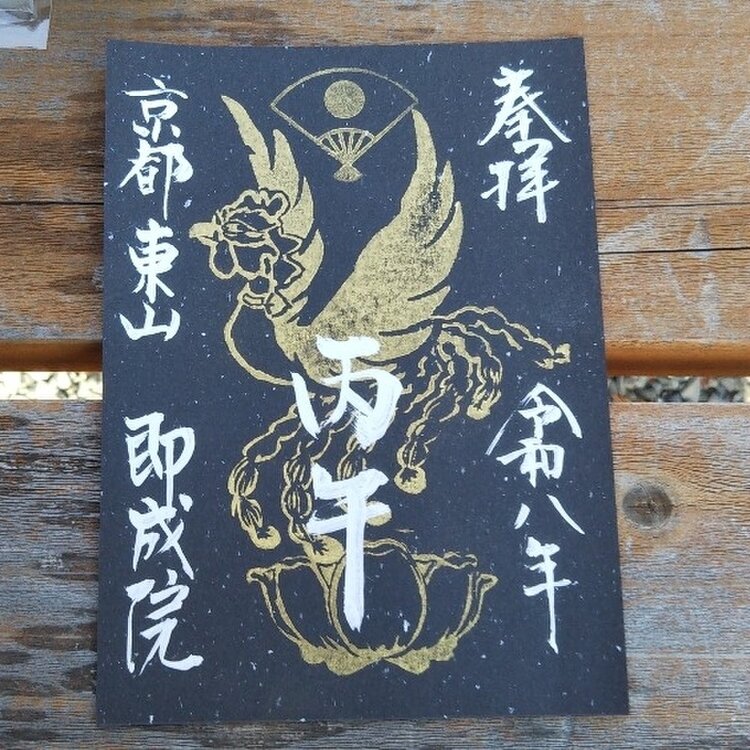 奉拝
令和八年
丙午
京都東山
即成院